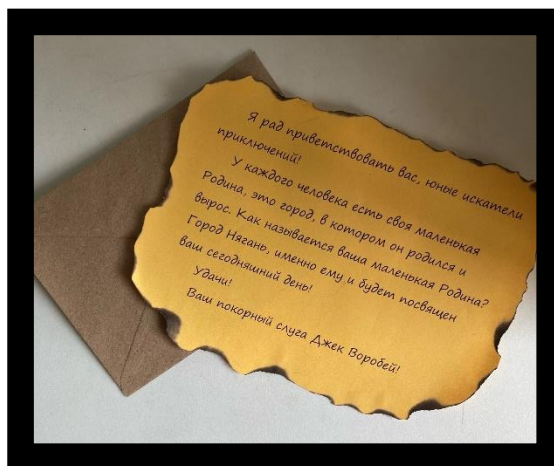 Я рад приветствовать вас, юные искатели
приключений!
У каждого человека есть своя маленькая
Родина, это город, в котором он родился и
вырос. Как называется ваша маленькая Родина?
Город Нягань, именно ему и будет посвящен
ваш сегодняшний день!
Удачи!
Ваш покорный слуга Джек Воробей!